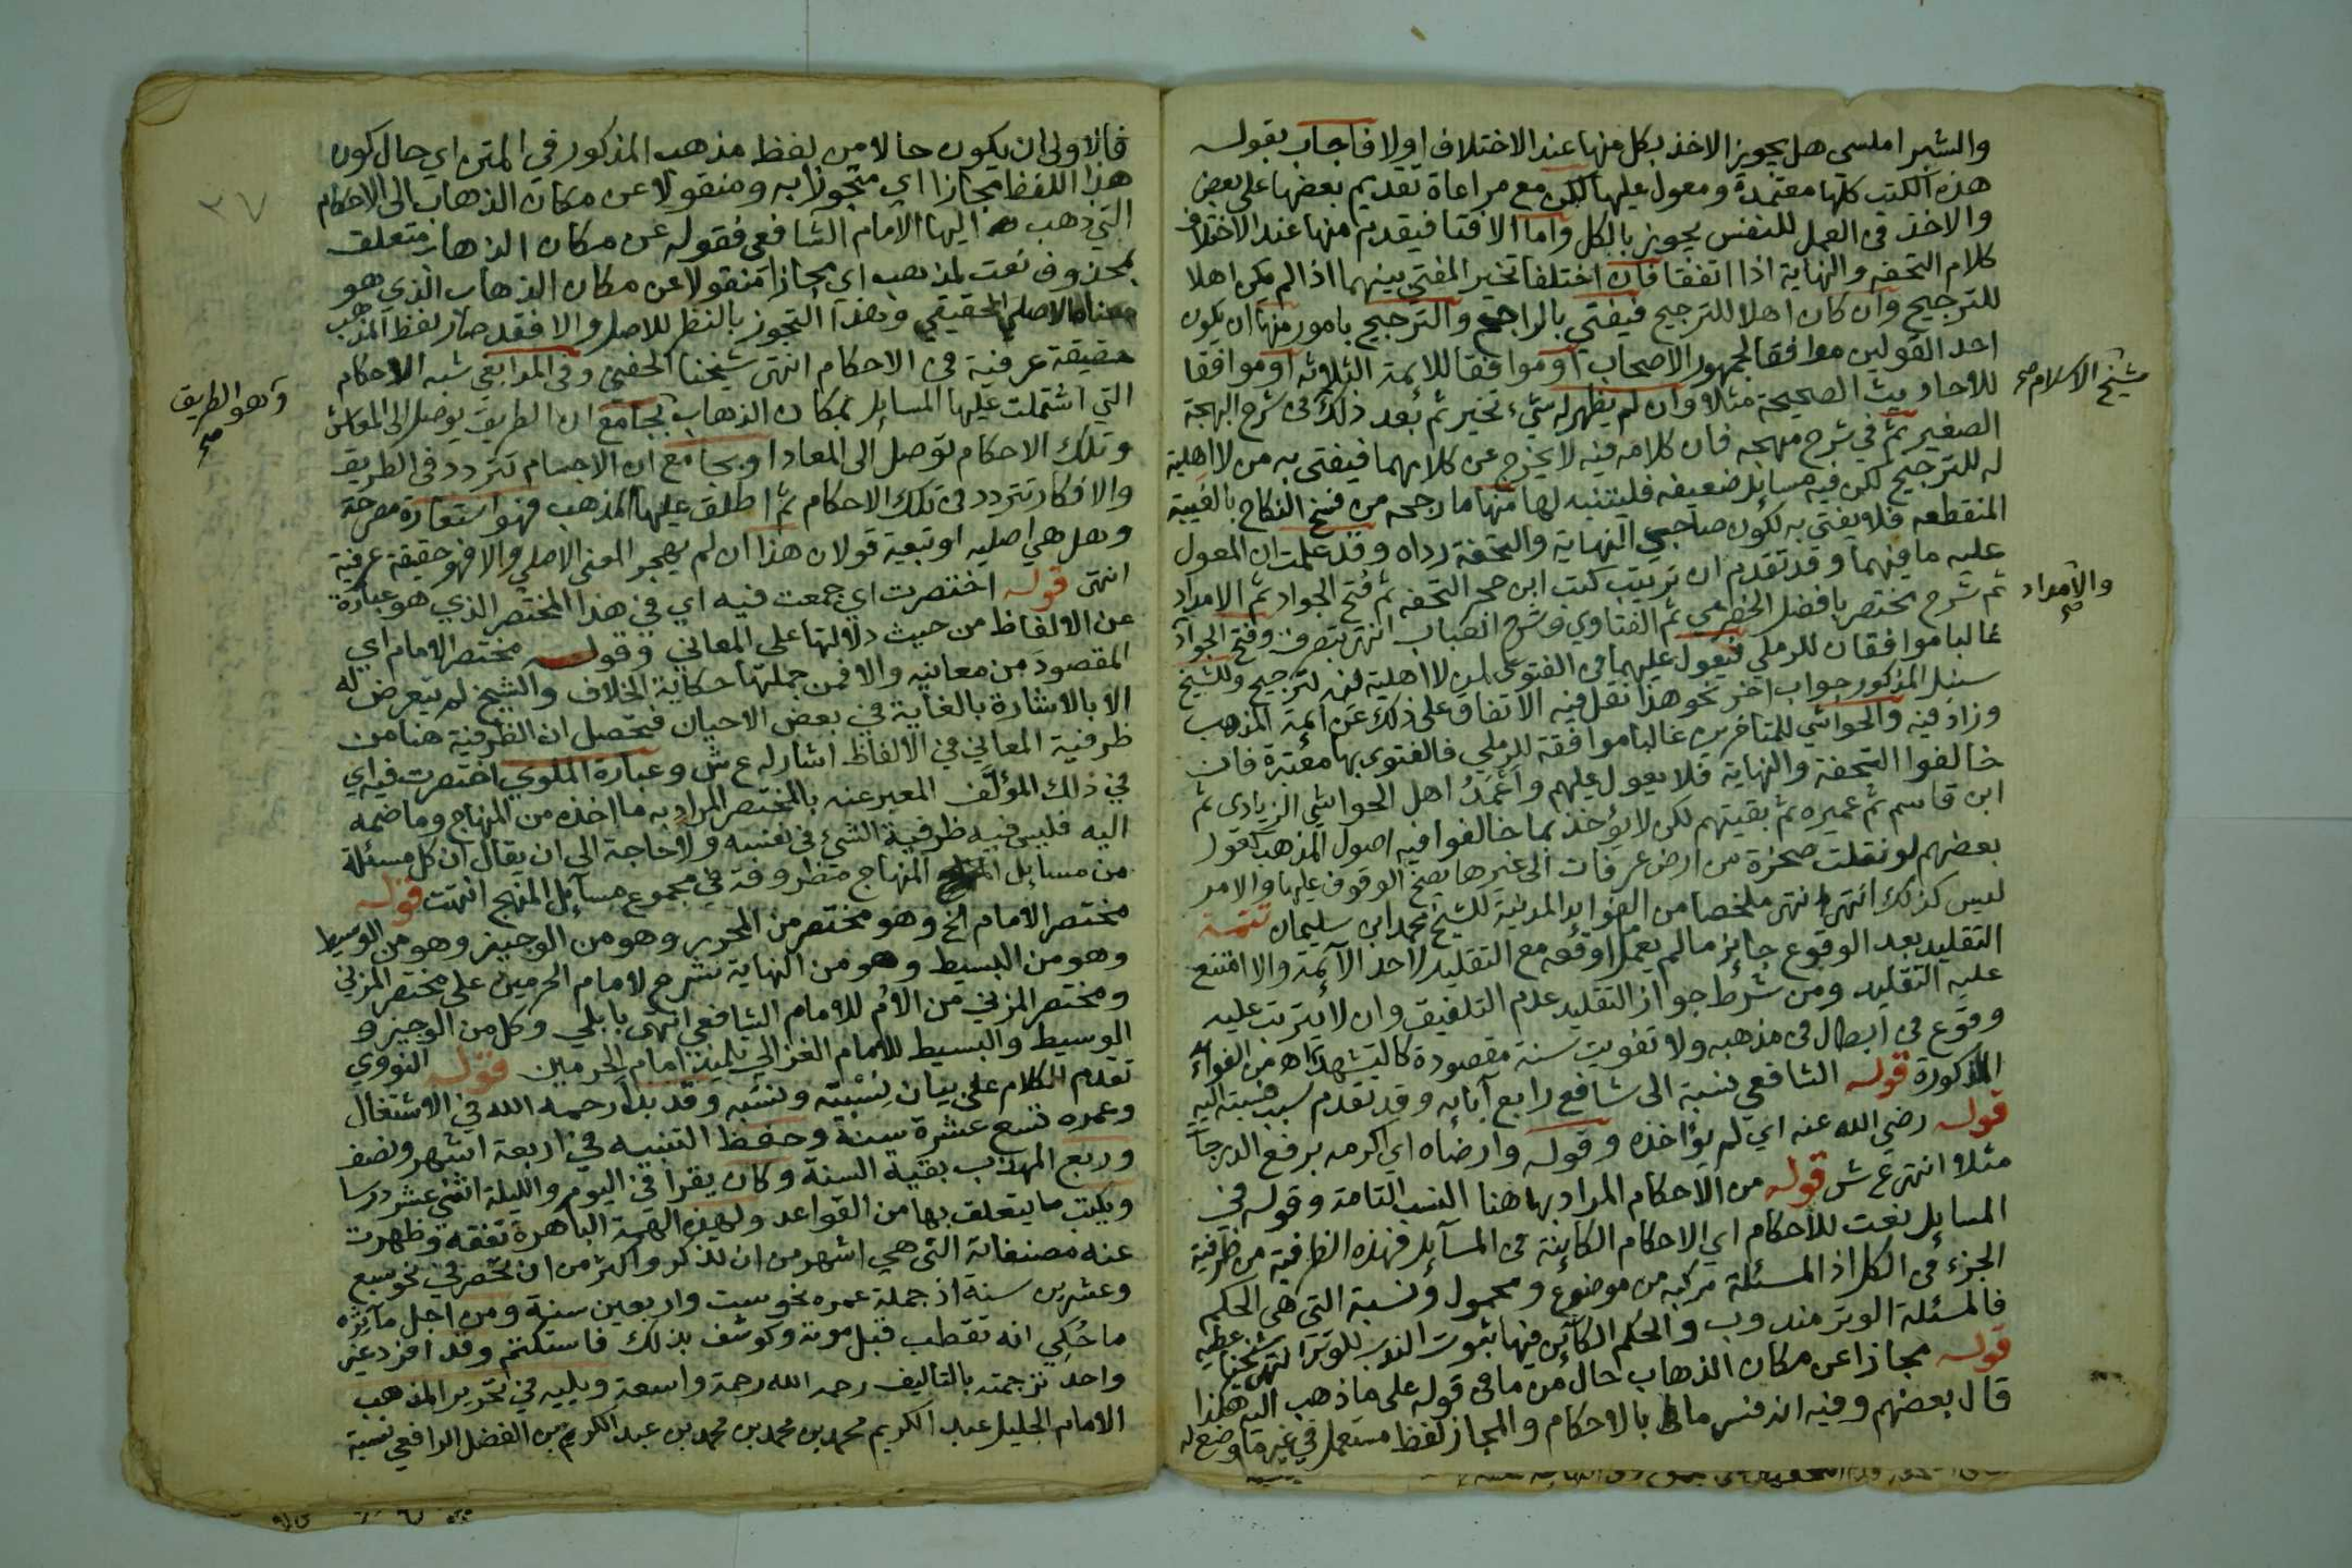 والشبراملسى هل يجوز الاخذ بكل منها عند الاختلاف اولا فاجاب بقوله
هذه الكتب كلها معتمدة ومعول عليها لكن مع مراعاة تقديم بعضها على بعض
والاخذ فى العمل للنفس يجوز بالكل واما الافتا فيقدم منها عند الاختلاف
كلام التحفه والنهاية اذا اتفقا فان اختلفا تخير المفتى بينهما اذا لم يكن اهلا
للترجيح وان كان اهلا للترجيح فيفتي بالراجح والترجيح بامور منها ان يكون
احد القولين موافقا لجمهور الاصحاب او موافقا للائمة الثلاثه او موافقا
للاحاديث الصحيحة مثلا وان لم يظهر له شىء تخير ثم بعد ذلك فى شرح البهجة
شيخ الاسلام صح
الصغير ثم في شرح منهجه فان كلامه فيه لا يخرج عن كلامهما فيفتى به من لا اهلية
له للترجيح لكن فيه مسايل ضعيفه فليتنبه لها منها ما رجحه من فسخ النكاح بالغيبة
المنقطعه فلا يفتى به لكون صاحبي النهاية والتحفة رداه وقد علمت ان المعول
عليه ما فيهما وقد تقدم ان ترتيب كتب ابن حجر التحفه ثم فتح الجواد ثم الامداد
ثم شرح مختصر بافضل الحضرمى ثم الفتاوي وشرح العباب انتهى بتصرف وفتح الجواد
والامداد صح
غالبا موافقان للرملي فيعول عليهما فى الفتوى لمن لا اهلية فيه لترجيح وللشيخ
سنبل المذكور جواب اخر نحو هذا نقل فيه الاتفاق على ذلك عن ائمة المذهب
وزاد فيه والحواشي للمتاخرين غالبا موافقة للرملي فالفتوى بها معتبرة فان
خالفوا التحفة والنهاية فلا يعول عليهم واعمد اهل الحواشي الزيادى ثم
ابن قاسم ثم عميره ثم بقيتهم لكن لا يؤخذ بما خالفوا فيه اصول المذهب كقول
بعضهم لو نقلت صخرة من ارض عرفات الى غيرها يصح الوقوف عليها والامر
ليس كذلك انتهى انتهى ملخصا من الفوايد المدنية للشيخ محمد ابن سليمان تتمة
التقليد بعد الوقوع جايز مالم يعمل اوقعه مع التقليد لاحد الآئمة والا امتنع
عليه التقليد ومن شرط جواز التقليد عدم التلفيق وان لا يترتب عليه
وقوع فى ابطال فى مذهبه ولا تفويت سنة مقصودة كالتشهد اه من الفوائد
المذكورة قوله الشافعي نسبة الى شافع رابع آبايه وقد تقدم سبب نسبته اليه
قوله رضي الله عنه اي لم يؤاخذه وقوله وارضاه اي اكرمه برفع الدرجات
مثلا انتهى ع ش قوله من الاحكام المراد بها هنا النسب التامة وقوله في
المسايل نعت للاحكام اي الاحكام الكاينة فى المسآيل فهذه الظرفية من ظرفية
الجزء فى الكل اذ المسئلة مركبه من موضوع ومحمول ونسبة التى هى الحكم
فالمسئلة الوتر مندوب والحكم الكائن فيها ثبوت الندب للوتر انتهى شيخنا عطيه
قوله مجازا عن مكان الذهاب حال من ما فى قوله على ما ذهب اليه هكذا
قال بعضهم وفيه انه فسر ما بالاحكام والمجاز لفظ مستعمل في غير ما وضع له
٣٧
فالاولى ان يكون حالا من لفظ مذهب المذكور في المتن اي حال كون
هذا اللفظ مجازا اي متجوزا به ومنقولا عن مكان الذهاب الى الاحكام
التي ذهب اليها الامام الشافعي فقوله عن مكان الذهاب متعلق
بمحذوف نعت لمذهب اى مجازا منقولا عن مكان الذهاب الذي هو
معناه الاصلي الحقيقي وهذا التجوز بالنظر للاصل والا فقد صار لفظ المذهب
حقيقة عرفية في الاحكام انتهى شيخنا الحفني وفى المدابغي شبه الاحكام
التي اشتملت عليها المسايل بمكان الذهاب بجامع ان الطريق يوصل الى المعاش
وهو الطريق صح
وتلك الاحكام توصل الى المعاد او بجامع ان الاجسام تتردد فى الطريق
والافكار تتردد في تلك الاحكام ثم اطلق عليها المذهب فهو استعارة مصرحة
وهل هي اصليه او تبعية قولان هذا ان لم يهجر المعنى الاصلي والا فهو حقيقة عرفية
انتهى قوله اختصرت اي جمعت فيه اي في هذا المختصر الذي هو عبارة
عن الالفاظ من حيث دلالتها على المعاني وقوله مختصر الامام اي
المقصود من معانيه والا فمن جملتها حكاية الخلاف والشيخ لم يتعرض له
الا بالاشارة بالغاية في بعض الاحيان فتحصل ان الظرفية هنا من
ظرفية المعاني في الالفاظ اشار له ع ش وعبارة الملوي اختصرت فيه اي
في ذلك المؤلف المعبر عنه بالمختصر المراد به ما اخذه من المنهاج وما ضمه
اليه فليس فيه ظرفية الشئ في نفسه ولا حاجة الى ان يقال ان كل مسئلة
من مسايل المنهاج مظروفة في مجموع مسآيل المنهج انتهت قوله
مختصر الامام الخ وهو مختصر من المحرر وهو من الوجيز وهو من الوسيط
وهو من البسيط وهو من النهاية شرح لامام الحرمين على مختصر المزني
ومختصر المزني من الام للامام الشافعي انتهى بابلي وكل من الوجيز و
الوسيط والبسيط للامام الغزالي تلميذ امام الحرمين قوله النووي
تقدم الكلام على بيان نسبته ونسبه وقد بدأ رحمه الله في الاشتغال
وعمره تسع عشرة سنة وحفظ التنبيه في اربعة اشهر ونصف
وربع المهذب بقية السنة وكان يقرا في اليوم والليلة اثني عشر درسا
ويكتب ما يتعلق بها من القواعد ولهذه الهمة الباهرة تفقه وظهرت
عنه مصنفاته التى هي اشهر من ان تذكر واكثر من ان تحصر في نحو سبع
وعشرين سنة اذ جملة عمره نحو ست واربعين سنة ومن اجل مآثره
ما حكي انه تقطب قبل موته وكوشف بذلك فاستكتم وقد افرد غير
واحد ترجمته بالتاليف رحمه الله رحمة واسعة ويليه في تحرير المذهب
الامام الجليل عبد الكريم محمد بن محمد بن محمد بن عبد الكريم بن الفضل الرافعي نسبة